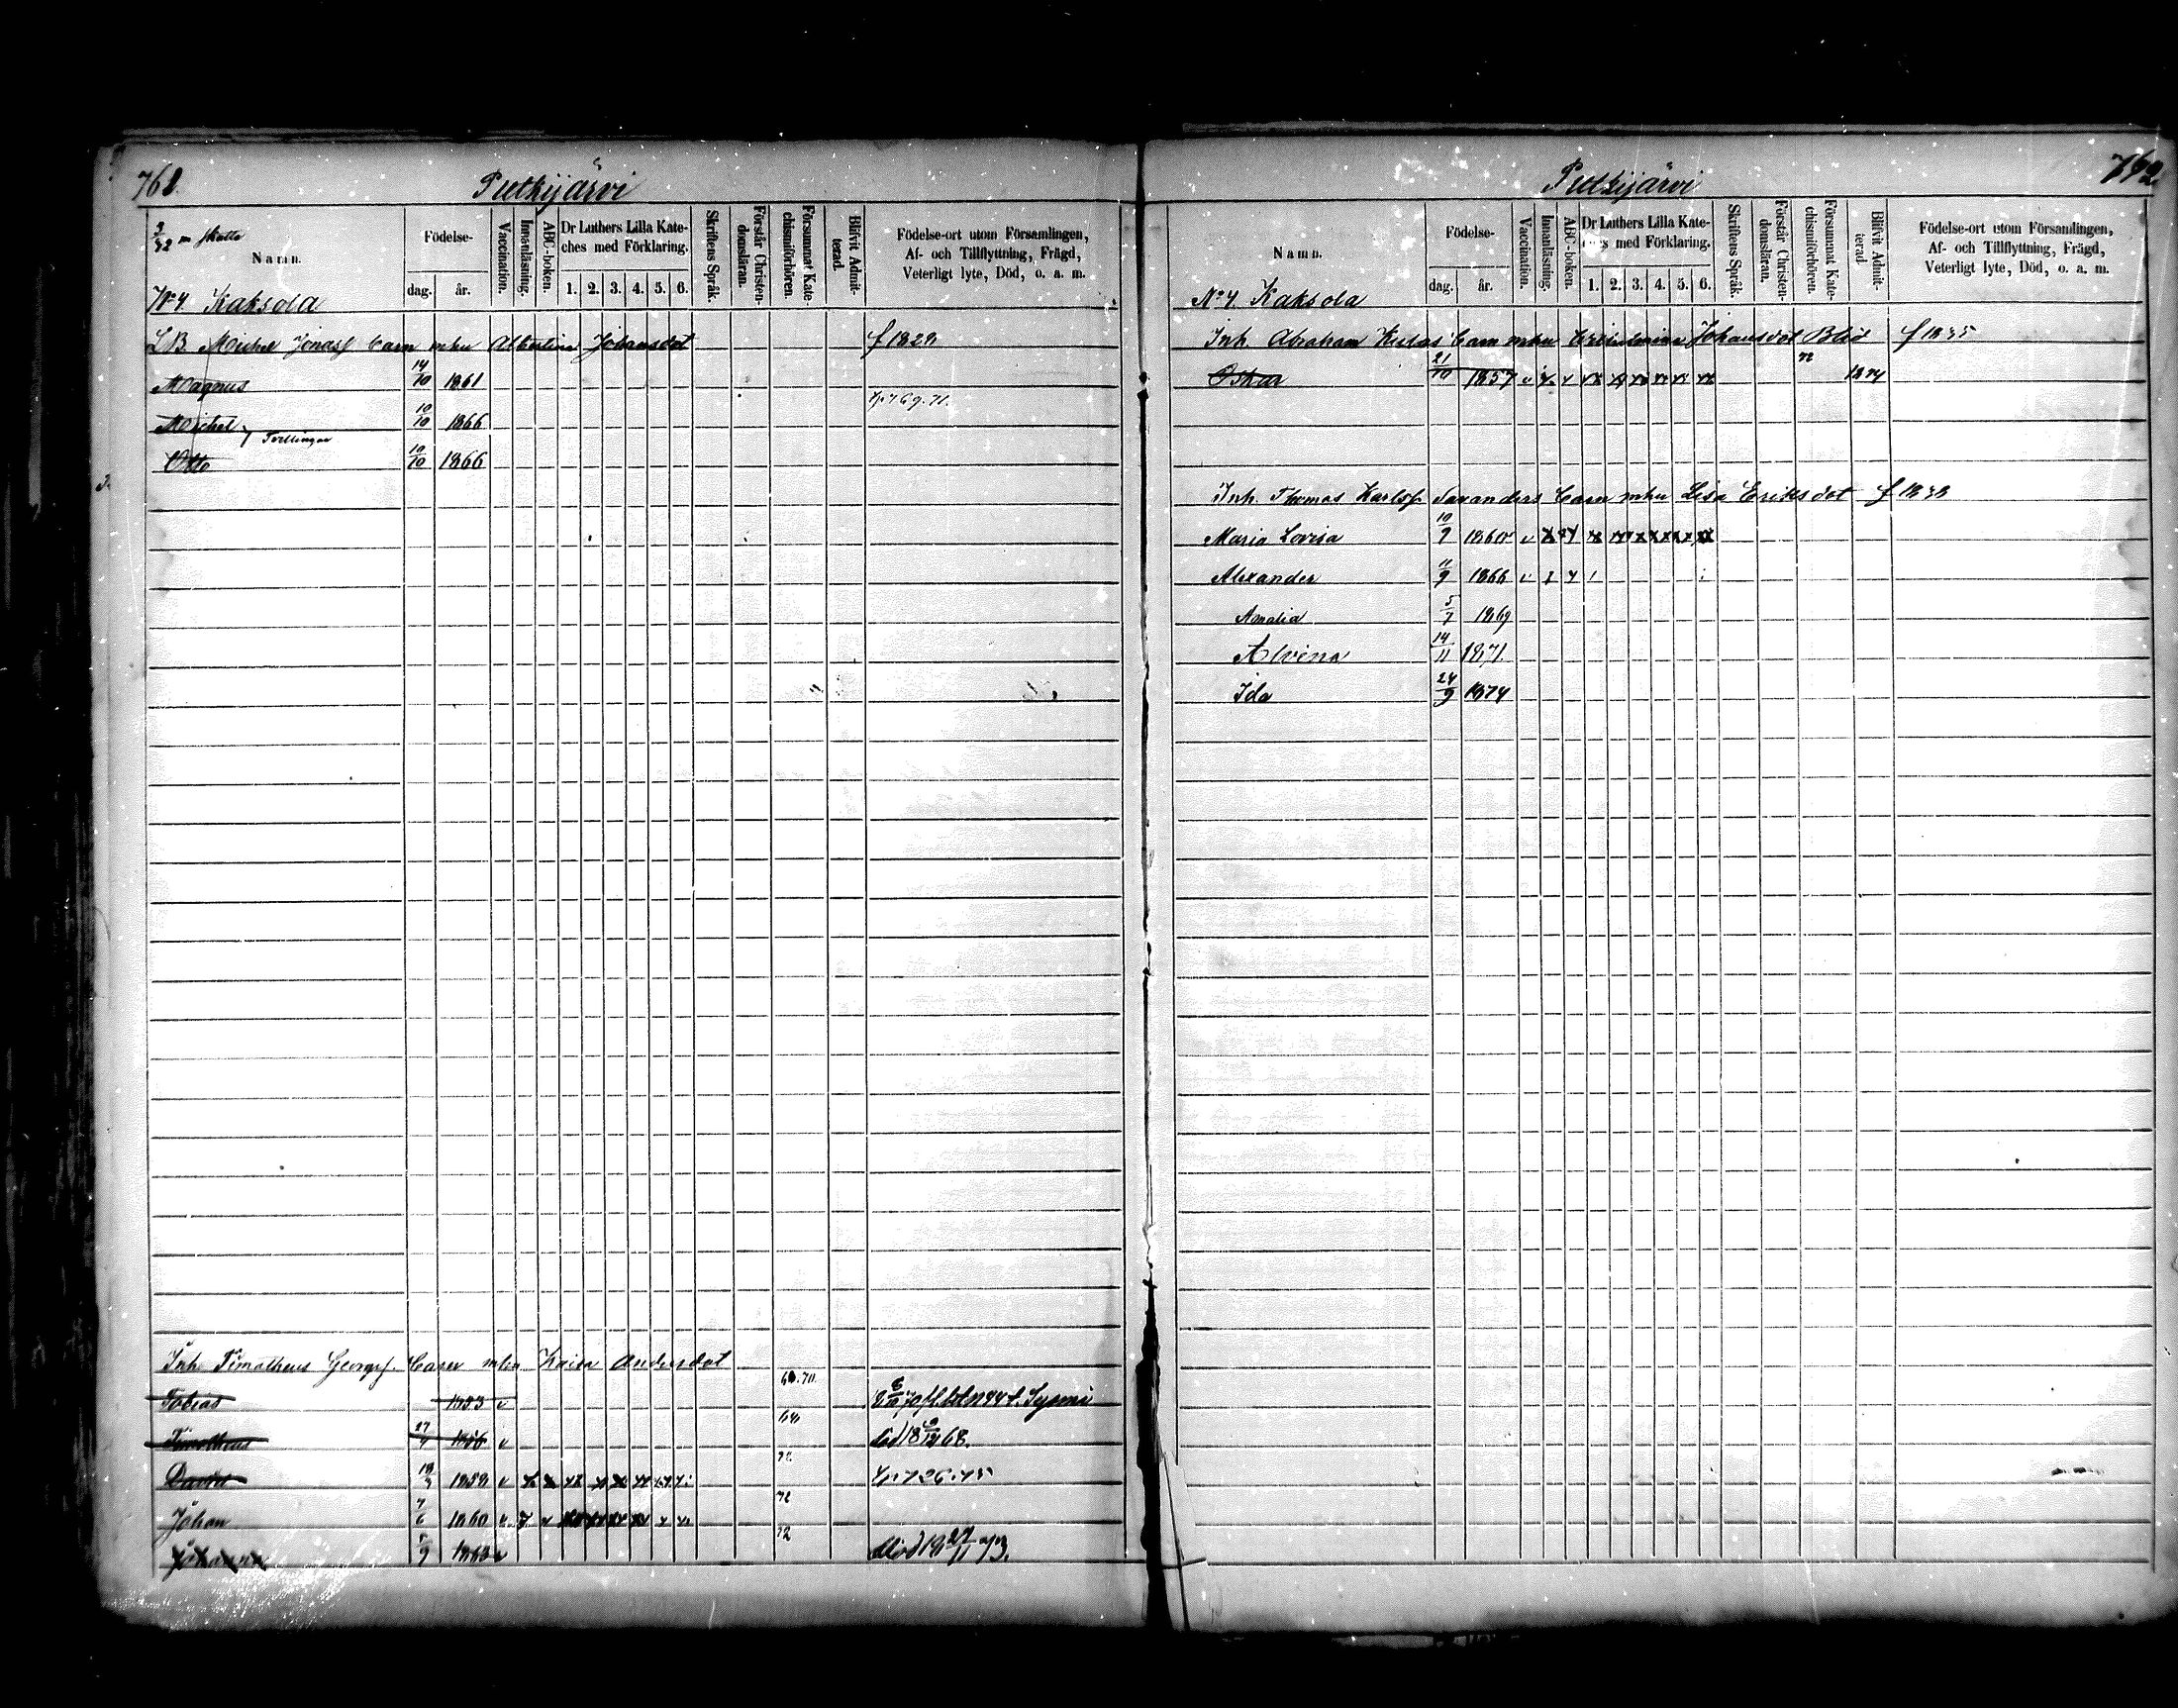 761
Putkijärvi
3/32 m skatt
Namn.
Födelse-
dag.
år.
Vaccination.
Innanläsning.
ABC-boken.
Dr Luthers Lilla Kate-
ches med Förklaring.
1. 2. 3. 4. 5. 6.
Skriftens Språk.
Förstår Christen-
domsläran.
Försummat Kate-
chismiförhören.
Blifvit Admit-
terad.
Födelse-ort utom Församlingen,
Af- och Tillflyttning, Frägd,
Veterligt lyte, Död, o. a. m.
No 4 Kaksola
LB. Michel Jonass. Barn mhu Albertina Johansdot f 1829
Magnus 14/10 1861
Michel 10/10 1866
Tvillingar
Otto 10/10 1866
Inh. Timotheus Georgs. Barn mhu Kaisa Andersdot
Tobias 1853 v
Timotheus 27 1856 v 68 död 18 68.
David 18/3 1858 v
Johan 7/6 1860 v 72
Johanna 5/9 1863 v 72 död 18 27/11 73.
762
Putkijärvi
Namn.
Födelse-
dag.
år.
Vaccination.
Innanläsning.
ABC-boken.
Dr Luthers Lilla Kate-
ches med Förklaring.
1. 2. 3. 4. 5. 6.
Skriftens Språk.
Förstår Christen-
domsläran.
Försummat Kate-
chismiförhören.
Blifvit Admit-
terad.
Födelse-ort utom Församlingen,
Af- och Tillflyttning, Frägd,
Veterligt lyte, Död, o. a. m.
No 4. Kaksola
Inh. Abraham Barn mhu Johansdot f 1835
Oskar 21/10 1857 v 1874
Inh. Thomas Karlss. Savanders Barn mhu Lisa Eriksdot f 1838
Maria Lovisa 10/9 1860 v
Alexander 11/9 1866 v
Amalia 5/7 1869
Alvina 14/11 1871.
Ida 24/9 1874